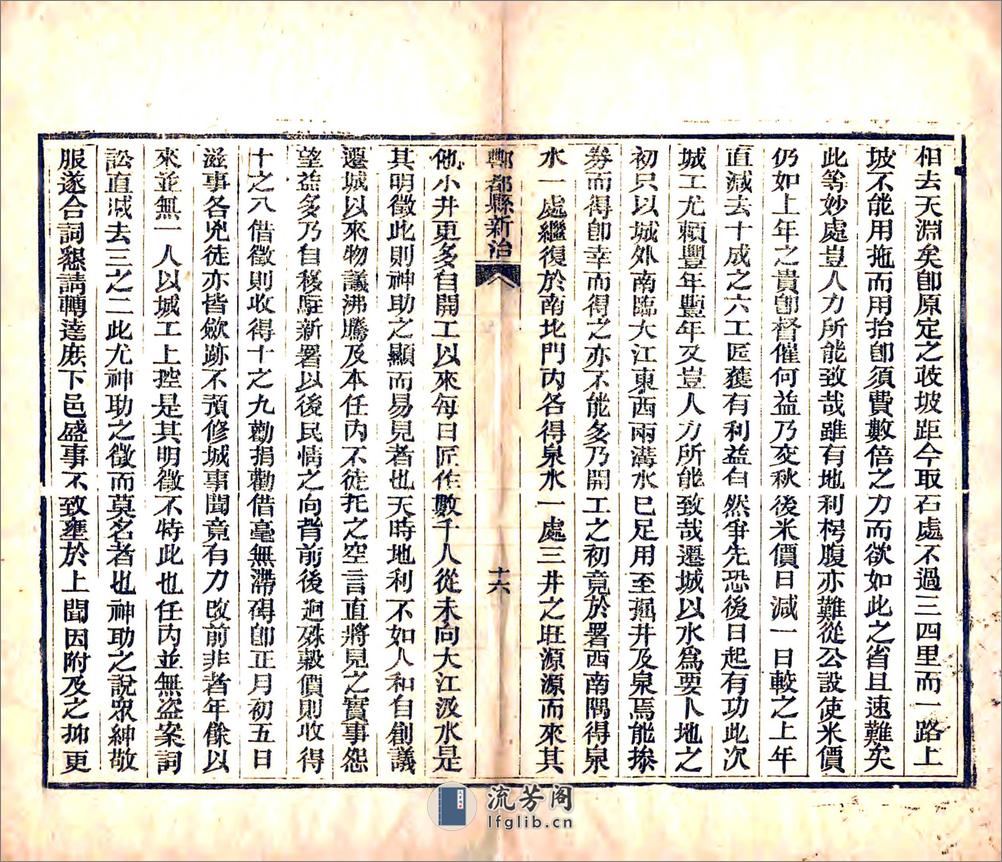 相去天淵矣卽原定之歧坡距今取石處不過三四里而一路上
坡不能用拖而用抬卽須費數倍之力而欲如此之省且速難矣
此等妙處豈人力所能致哉雖有地利枵腹亦難從公設使米價
仍如上年之貴卽督催何益乃交秋後米價日減一日較之上年
直減去十成之六工匠獲有利益自然爭先恐後日起有功此次
城工尤賴豐年豐年又豈人力所能致哉遷城以水爲要卜地之
初只以城外南臨大江東西兩溝水已足用至掘井及泉焉能摻
券而得卽幸而得之亦不能多乃開工之初竟於署西南隅得泉
水一處繼復於南北門內各得泉水一處三井之旺源源而來其
酆都縣新治
十六
他小井更多自開工以來每日匠作數千人從未向大江汲水是
其明徵此則神助之顯而易見者也天時地利不如人和自創議
遷城以來物議沸騰及本任內不徒托之空言直將見之實事怨
望益多乃自移駐新署以後民情之向背前後迥殊穀價則收得
十之八借徵則收得十之九勸捐勸借毫無滯礙卽正月初五日
滋事各兇徒亦皆歛跡不預修城事聞竟有力改前非者年餘以
來並無一人以城工上控是其明徵不特此也任內並無盜案詞
訟直減去三之二此尤神助之徵而莫名者也神助之說衆紳敬
服遂合詞懇請轉達庶下邑盛事不致壅於上聞因附及之抑更
流芳阁
lfglib.cn